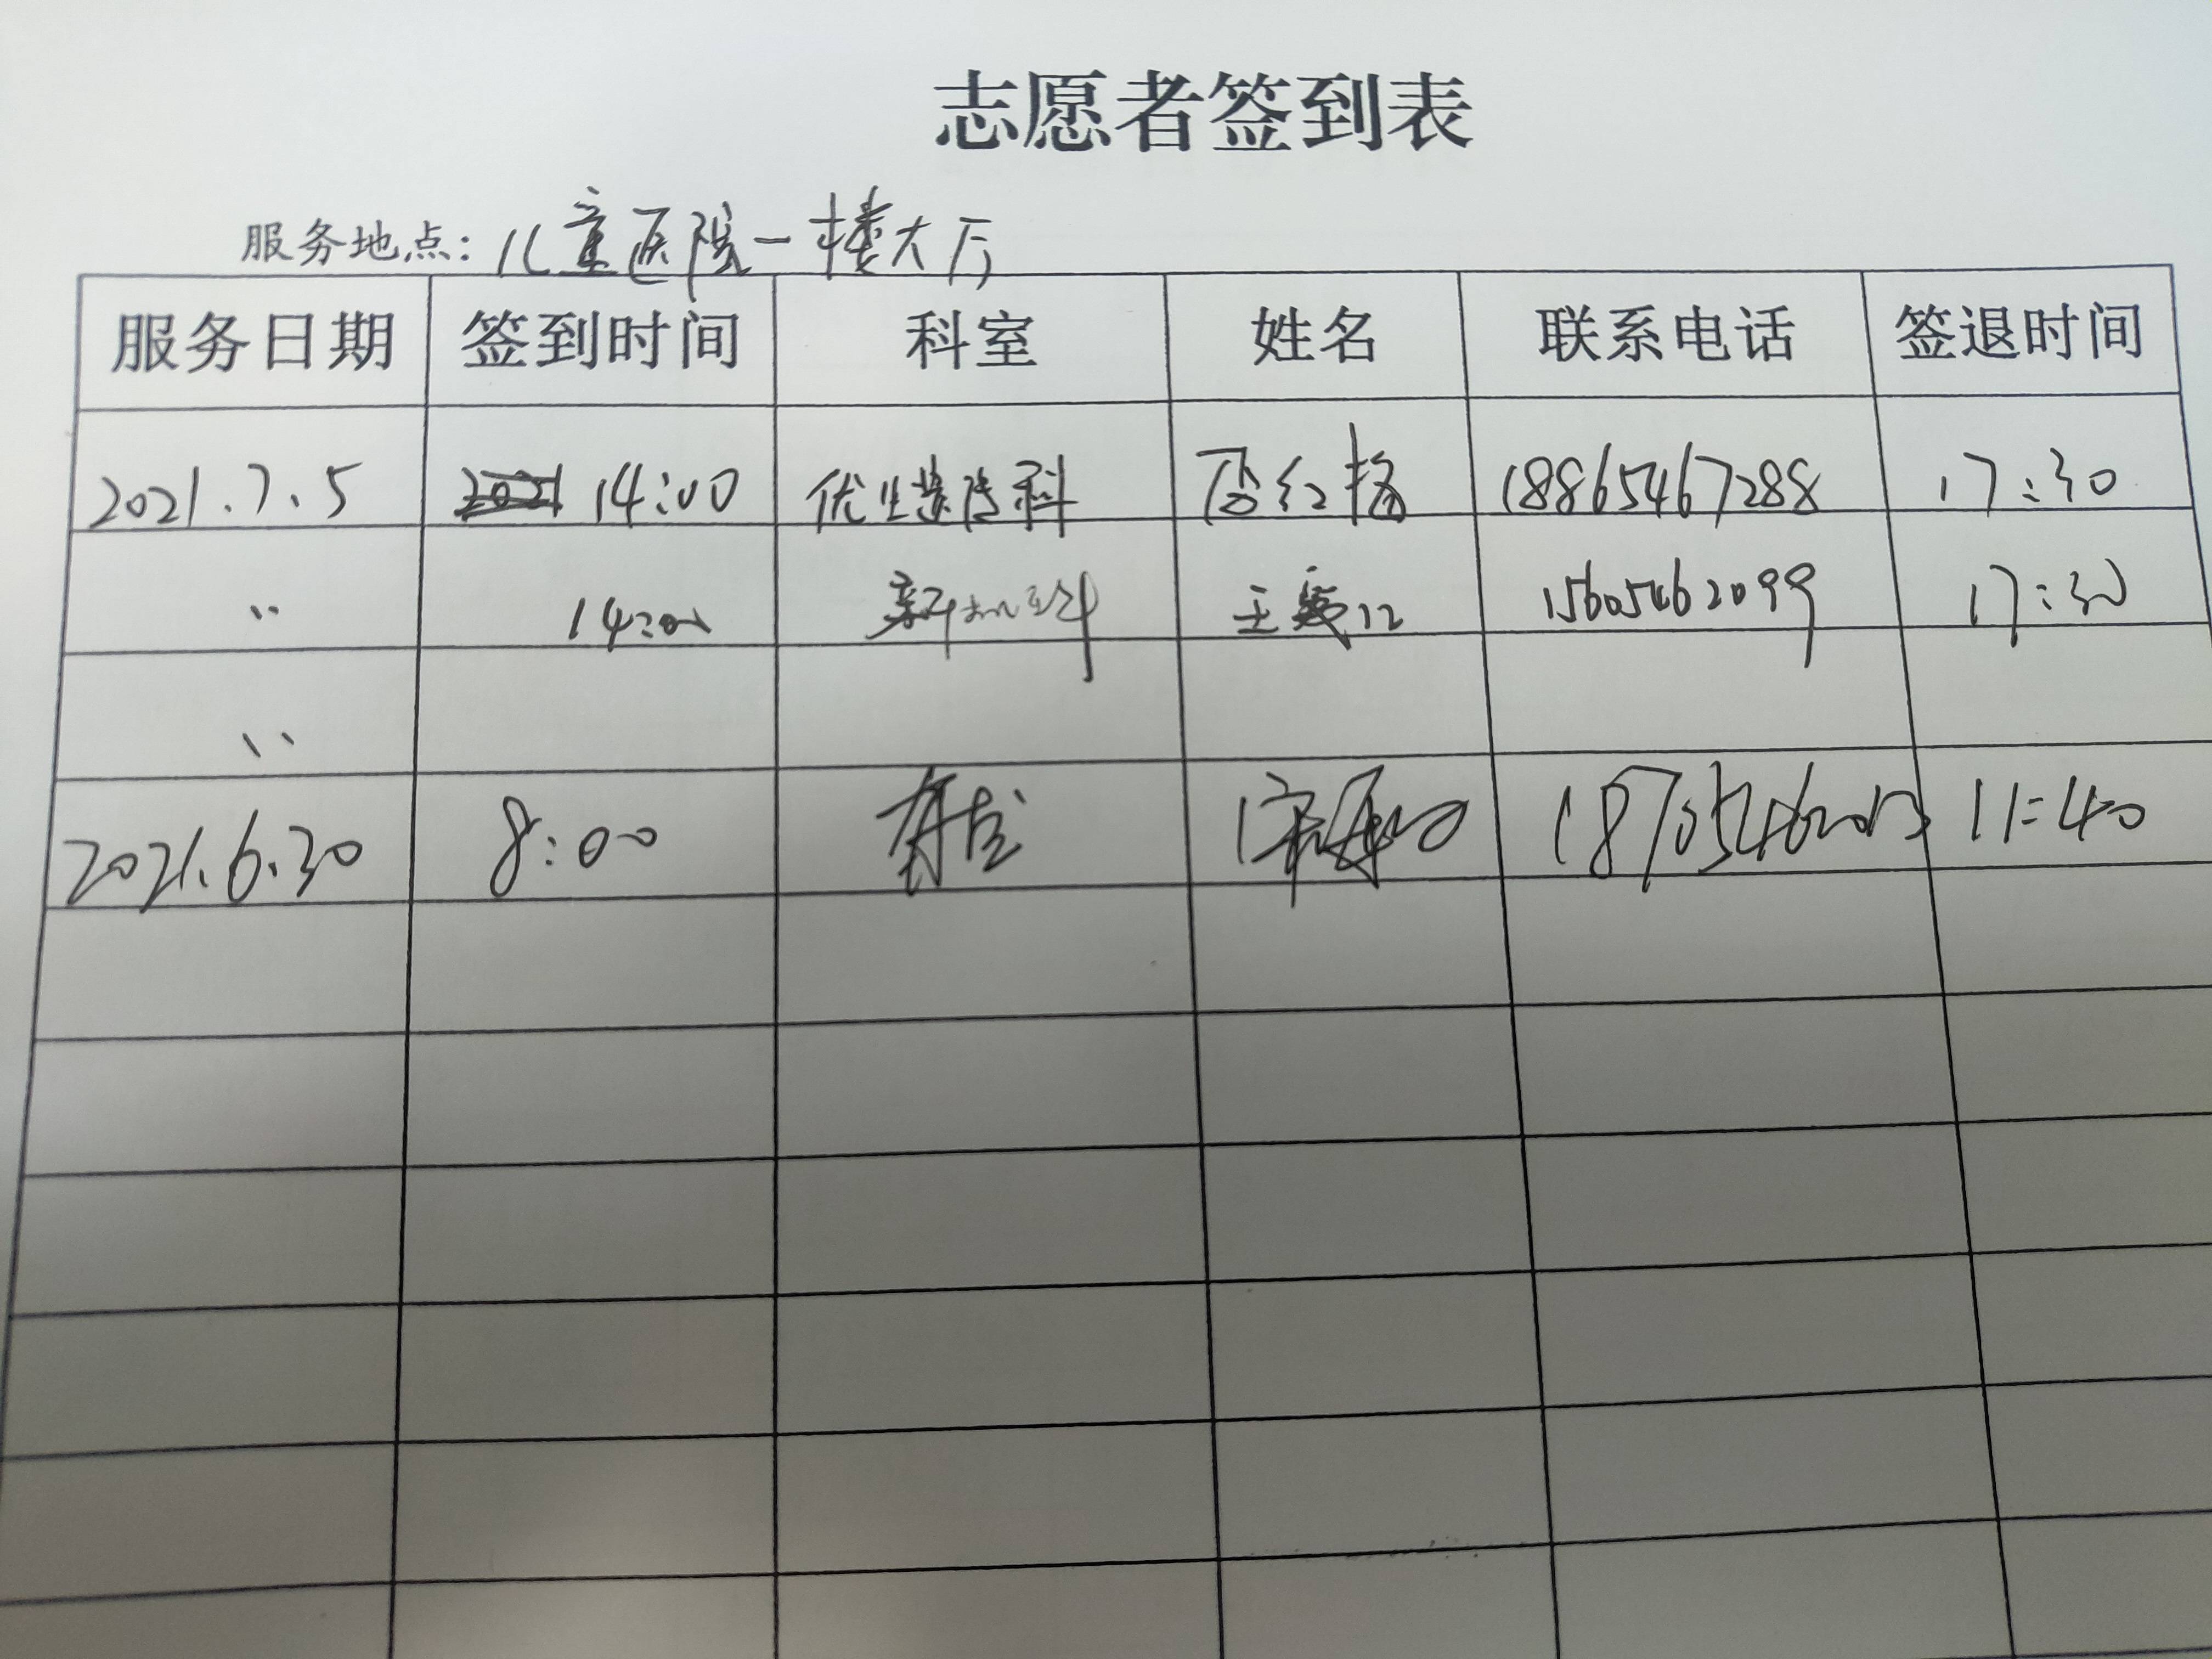 志愿者签到表
服务地点：儿童医院一楼大厅
服务日期 签到时间 科室 姓名 联系电话 签退时间
2021.7.5 14:00 优生遗传科 红梅 18865467288 17:30
〃 14:00 王 15605462099 17:30
〃
2021.6.30 8:00 11:40